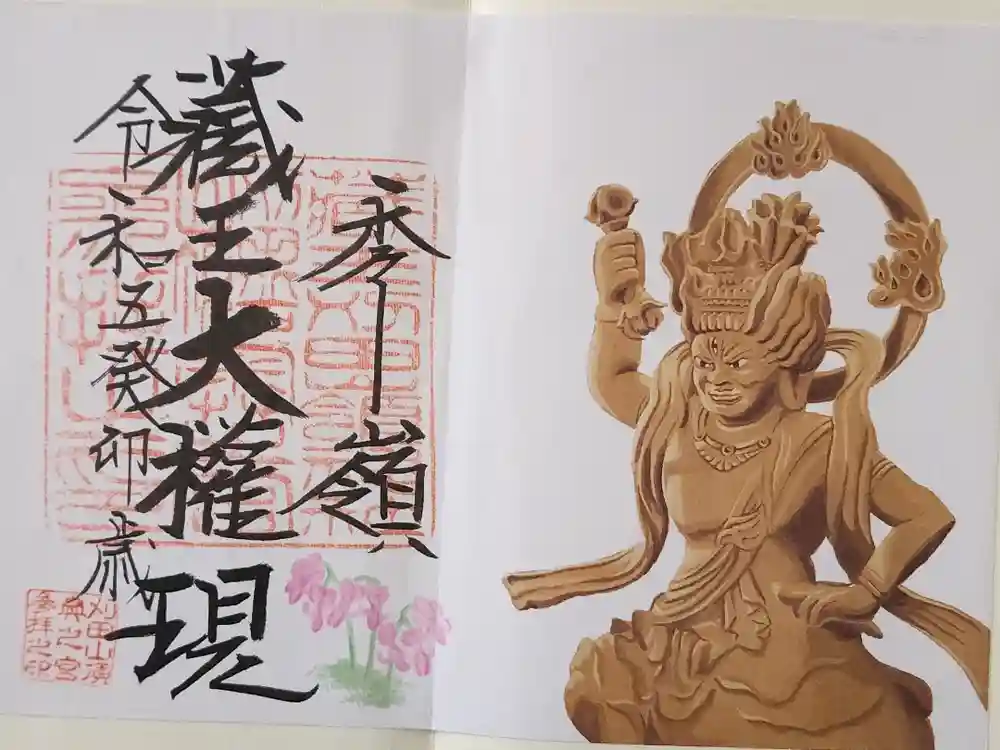 秀嶺
藏王大權現
令和五癸卯歳
刈田山頂
奥之宮
参拝之印